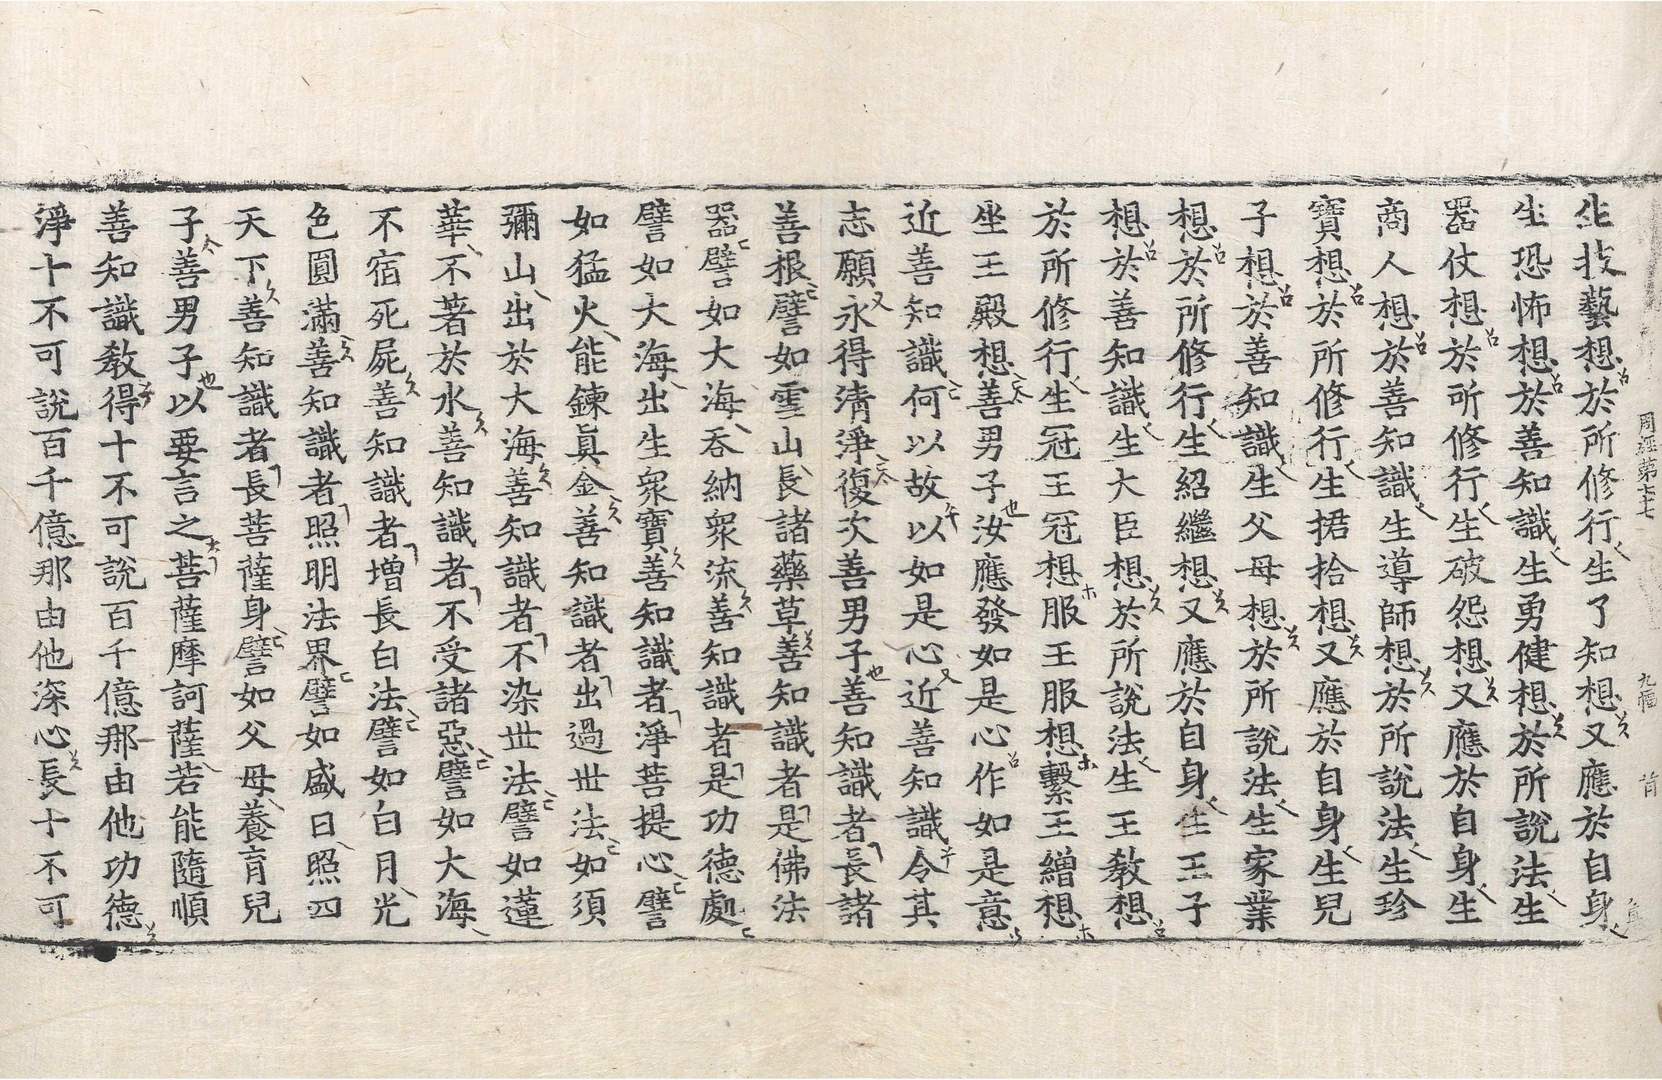 周經第七七　九幅　肯
生技藝想於所修行生了知想又應於自身
生恐怖想於善知識生勇健想於所說法生
器仗想於所修行生破怨想又應於自身生
商人想於善知識生導師想於所說法生珍
寶想於所修行生捃拾想又應於自身生兒
子想於善知識生父母想於所說法生家業
想於所修行生紹繼想又應於自身生王子
想於善知識生大臣想於所說法生王教想
於所修行生冠王冠想服王服想繫王繒想
坐王殿想善男子汝應發如是心作如是意
近善知識何以故以如是心近善知識令其
志願永得清淨復次善男子善知識者長諸
善根譬如雪山長諸藥草善知識者是佛法
器譬如大海吞納衆流善知識者是功德處
譬如大海出生衆寶善知識者淨菩提心譬
如猛火能鍊眞金善知識者出過世法如須
彌山出於大海善知識者不染世法譬如蓮
華不著於水善知識者不受諸惡譬如大海
不宿死屍善知識者增長白法譬如白月光
色圓滿善知識者照明法界譬如盛日照四
天下善知識者長菩薩身譬如父母養育兒
子善男子以要言之菩薩摩訶薩若能隨順
善知識教得十不可說百千億那由他功德
淨十不可說百千億那由他深心長十不可